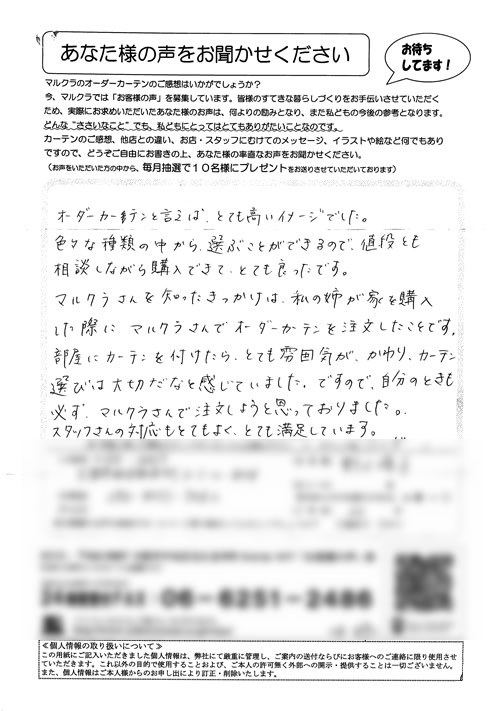 あなた様の声をお聞かせください
お待ち
してます!
マルクラのオーダーカーテンのご感想はいかがでしょうか?
今、マルクラでは「お客様の声」を募集しています。皆様のすてきな暮らしづくりをお手伝いさせていただく
ため、実際にお求めいただいたあなた様のお声は、何よりの励みとなり、また私どもの今後の参考となります。
どんな“ささいなこと”でも、私どもにとってはとてもありがたいことなのです。
カーテンのご感想、他店との違い、お店・スタッフにむけてのメッセージ、イラストや絵など何でもあり
ですので、どうぞご自由にお書きの上、あなた様の率直なお声をお聞かせください。
(お声をいただいた方の中から、毎月抽選で10名様にプレゼントをお送りさせていただいております)
オーダーカーテンと言えば、とても高いイメージでした。
色々な種類の中から、選ぶことができるので、値段とも
相談しながら購入できて、とても良ったです。
マルクラさんを知ったきっかけは、私の姉が家を購入
した際にマルクラさんでオーダーカーテンを注文したことです。
部屋にカーテンを付けたら、とても雰囲気が、かわり、カーテン
選びは大切だなと感じていました。ですので、自分のときも
必ず、マルクラさんで注文しようと思っておりました。
スタッフさんの対応もとてもよく、とても満足しています。
06-6251-2486
≪個人情報の取り扱いについて≫
この用紙にご記入いただきました個人情報は、弊社にて厳重に管理し、ご案内の送付ならびにお客様へのご連絡に限り使用させ
ていただきます。これ以外の目的で使用することおよび、ご本人の許可無く外部への開示・提供することは一切ございません。
また、個人情報はご本人様からのお申し出により訂正・削除いたします。